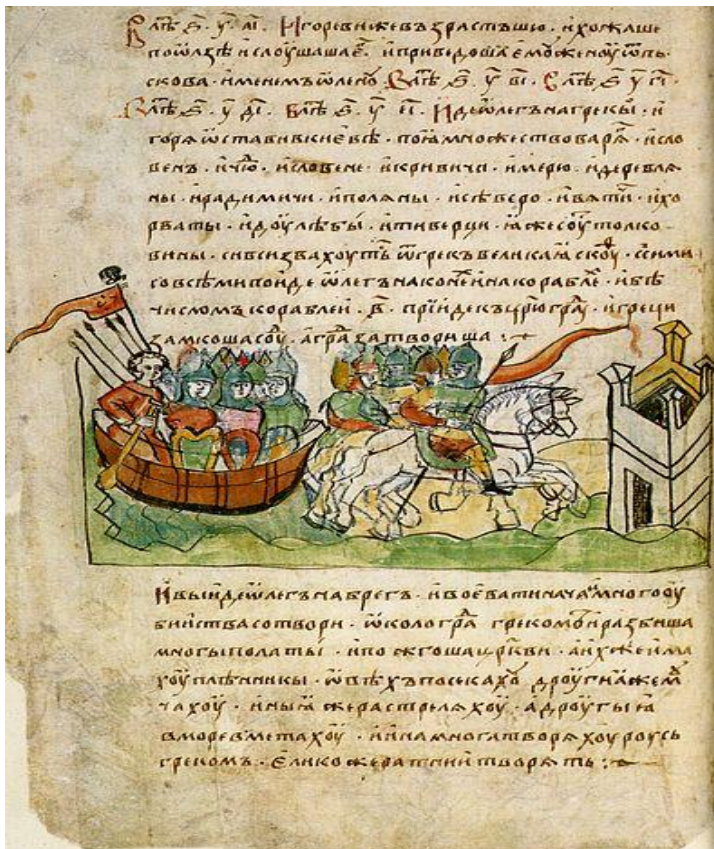 В лѣ҃ ҂ѕ҃ · у҃ · аі҃ · Игоревижевъзрастъшю · ихожаше
поѡлзѣ ислоушашаег҃ · иприведошаемꙋженоуѿпь
скова · именемъѡленоу · В лѣ҃ ҂ѕ҃ · у҃ · ві҃ · В лѣ҃ ҂ѕ҃ · у҃ · гі҃ ·
В лѣ҃ ҂ѕ҃ · у҃ · ді҃ · В лѣ҃ ҂ѕ҃ · у҃ · еі҃ · Идеѡлегънагрекы · и
горяѡставивкиевѣ · поꙗмножествоваряг҃ · исло
венъ · ичюд҃ · исловене · икривичи · имерю · идеревля
ны · ирадимичи · иполяны · исѣверо · ивятичи · ихо
рваты · идоулѣбы · итиверци · ꙗжесоутолко
вины · сивсизвахоутьс҃ ѿгрекъвеликаꙗскоуф҃ · ссими
совсѣмипоидеѡлегънаконехинакораблех҃ · ибѣ
числомъкораблеи · в҃ · прїидекъцр҃югрꙋ · игреци
замкошасоуд҃ · аградзатвориша :·
Ивыидеѡлегънабрегъ · ивоеватиначатмногооу
биистваствори · ѡкологрд҃а грекомъиразбиша
многыполаты · ипожгошацр҃кви · аихжеима
хоуплѣнникы · ѡвѣхъпосекахоу дроугиꙗжемꙋ
чахоу · иныꙗжерастреляхоу · адроугыꙗ
вморевметахоу · иинамногатворяхоуроусь
грекомъ · Еликожератниитворять :·